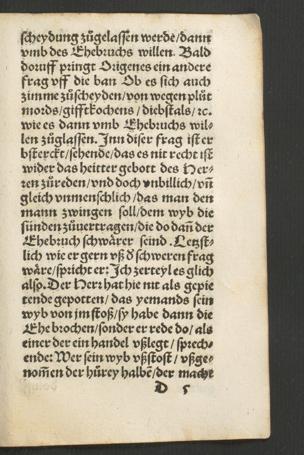 scheydung zůgelassen werde/dann
vmb des Ehebruchs willen. Bald
doruff pringt Origenes ein andere
frag vff die ban Ob es sich auch
zimme zůscheyden/von wegen plůt
mords/gifftkochens/diebstals/ꝛc.
wie es dann vmb Ehebruchs wil-
len zůglassen. Inn diser frag ist er
bsterckt/sehende/das es nit recht ist
wider das heitter gebott des Her-
ren zůreden/vnd doch vnbillich/vn̄
gleich vnmenschlich/das man den
mann zwingen soll/dem wyb die
sünden zůuertragen/die do dañ der
Ehebruch schwårer seind. Letzst-
lich wie er gern vß d̓ schweren frag
wåre/spricht er: Ich zerteyl es glich
also. Der Herr hat hie nit als gepie
tende gepotten/das yemands sein
wyb von jm stoß/sy habe dann die
Ehe brochen/sonder er rede do/als
einer der ein handel vßlegt/sprech-
ende: Wer sein wyb vßstost/vßge-
nom̄en der hůrey halbē/der macht
D 5